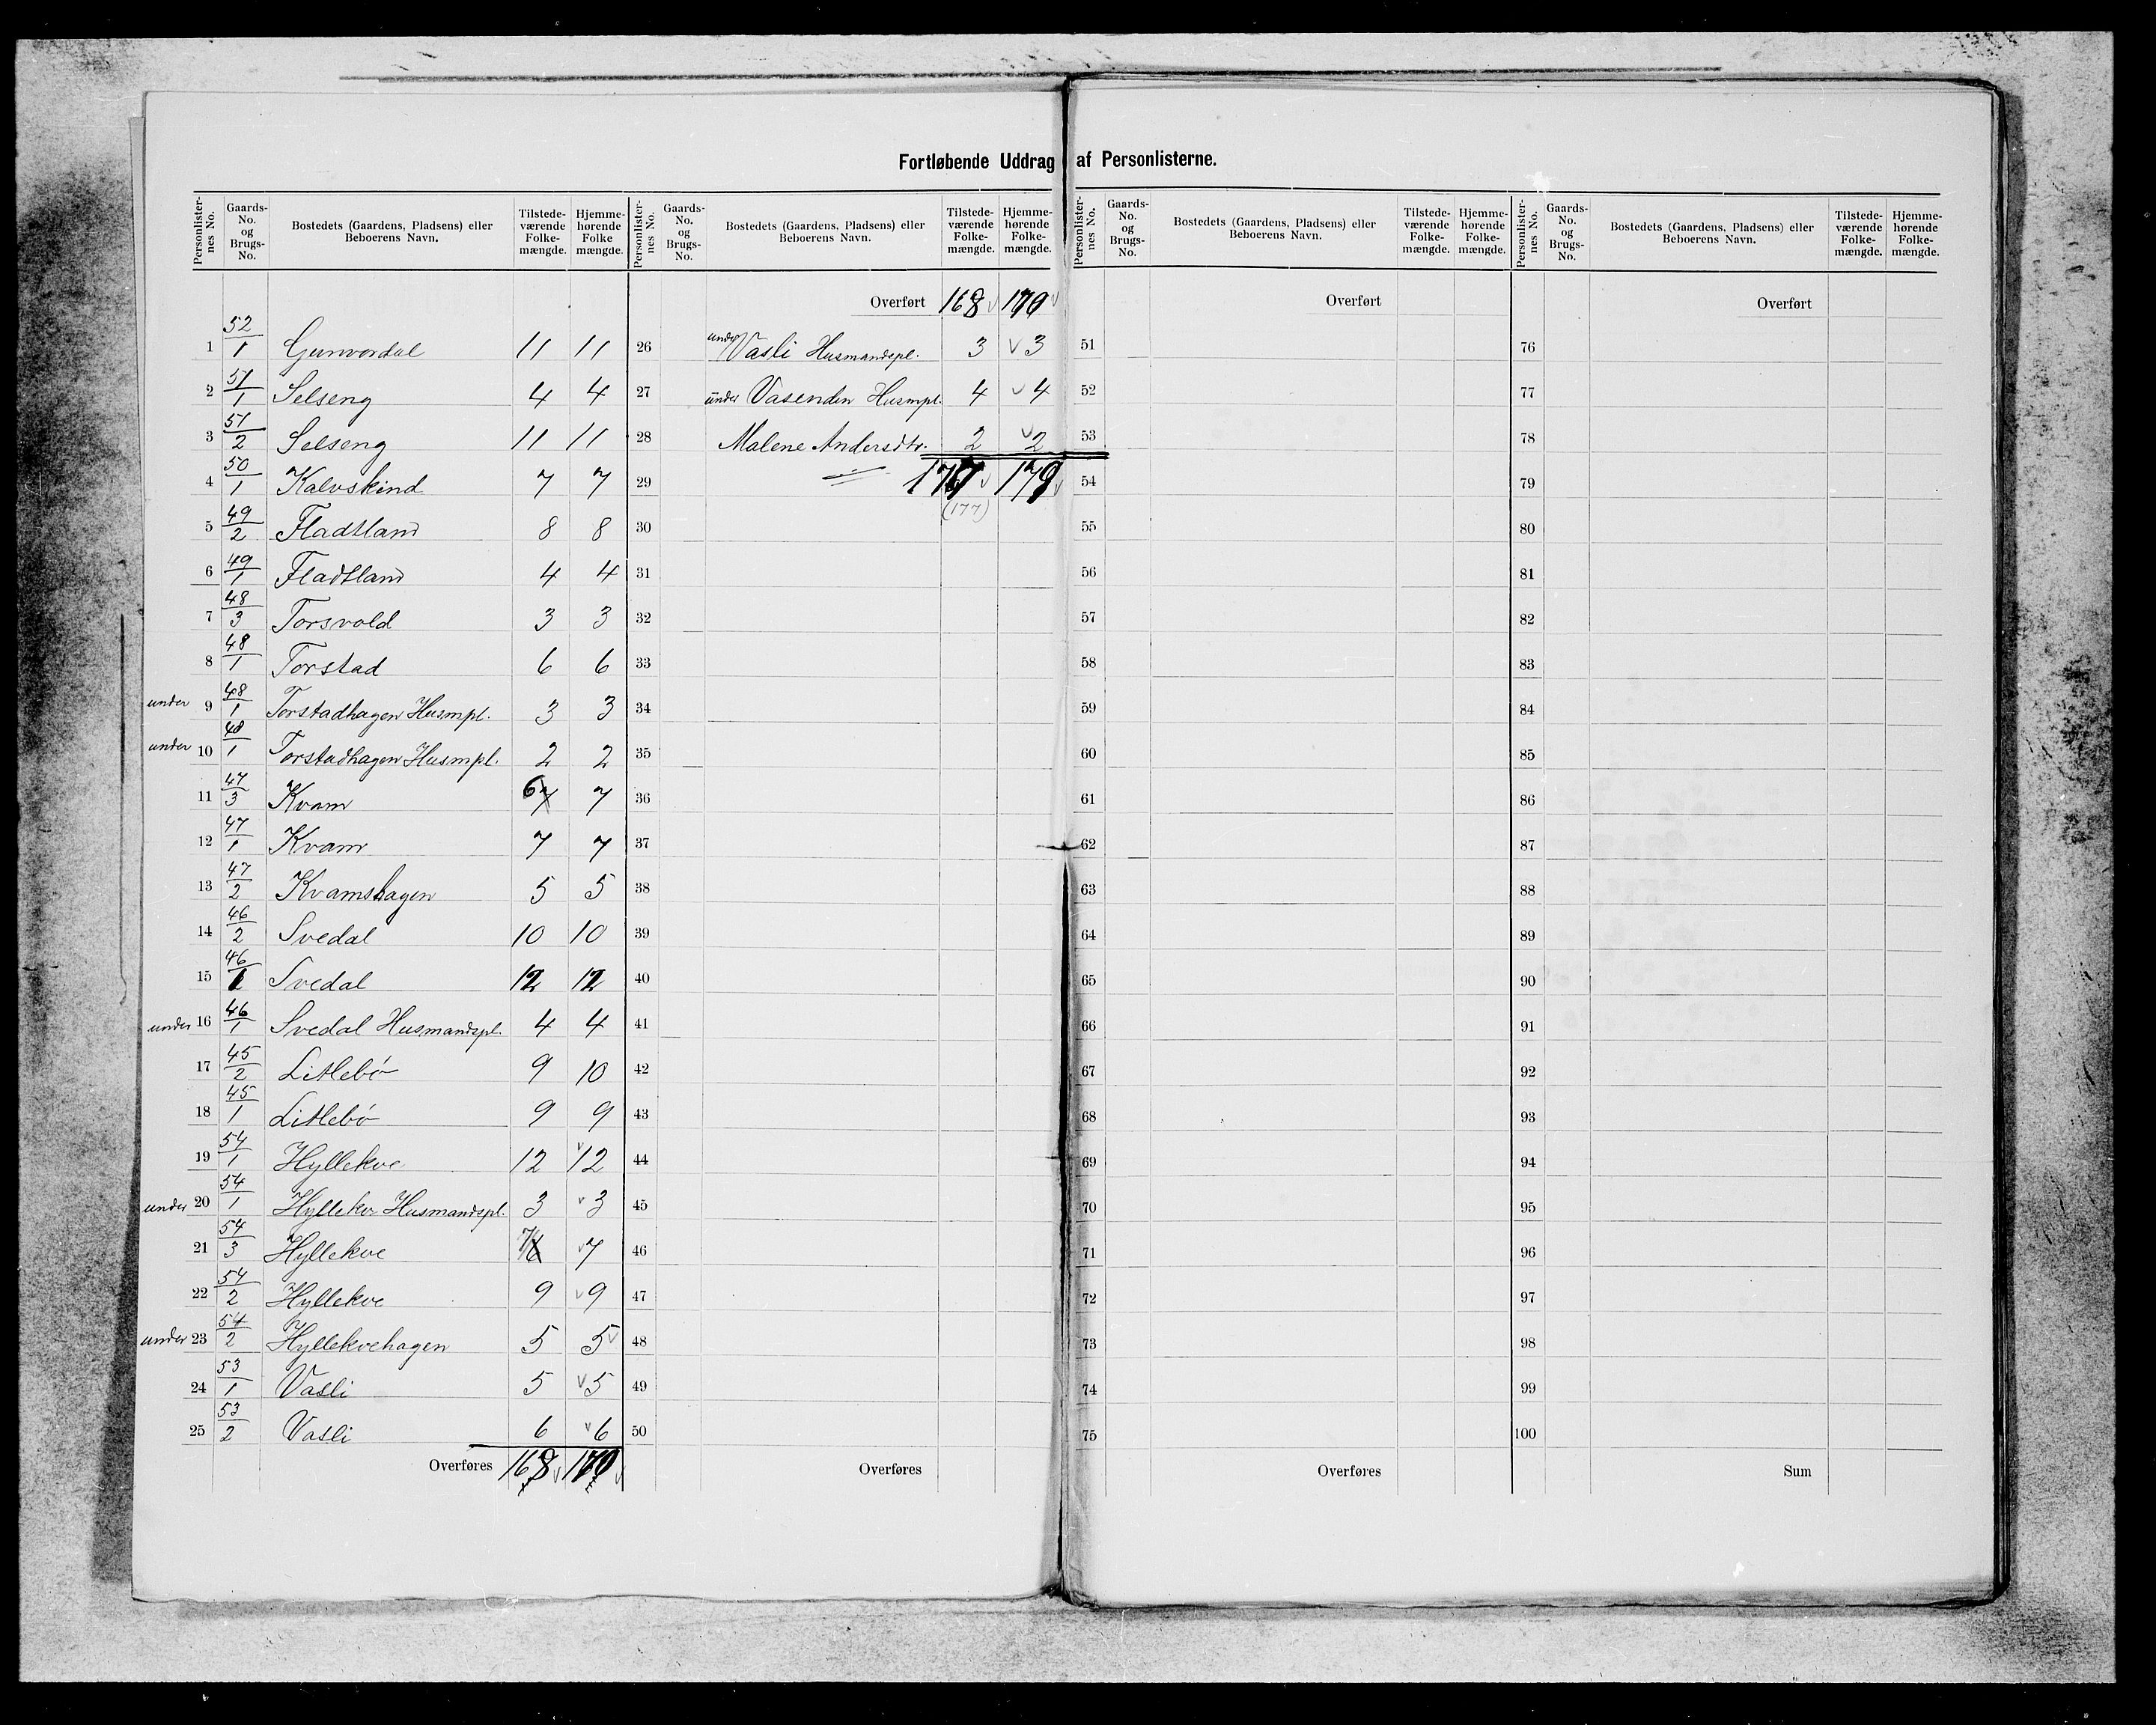 Fortløbende Uddrag af Personlisterne.
Personlister-nes No. | Gaards-No. og Brugs-No. | Bostedets (Gaardens, Pladsens) eller Beboerens Navn. | Tilstede-værende Folke-mængde. | Hjemme-hørende Folke mængde.
1 52/1 Gunvordal 11 11
2 51/1 Selseng 4 4
3 51/2 Selseng 11 11
4 50/1 Kalvskind 7 7
5 49/2 Fladtland 8 8
6 49/1 Fladtland 4 4
7 48/3 Torsvold 3 3
8 48/1 Torstad 6 6
under 9 48/1 Torstadhagen Husmpl. 3 3
under 10 48/1 Torstadhagen Husmpl. 2 2
11 47/3 Kvam 6 7 7
12 47/1 Kvam 7 7
13 47/2 Kvamshagen 5 5
14 46/2 Svedal 10 10
15 46/1 Svedal 12 12
under 16 46/1 Svedal Husmandspl. 4 4
17 45/2 Litlebø 9 10
18 45/1 Litlebø 9 9
19 54/1 Hyllekve 12 12
under 20 54/1 Hyllekve Husmandspl. 3 3
21 54/3 Hyllekve 7 6 7
22 54/2 Hyllekve 9 9
under 23 54/2 Hyllekvehagen 5 5
24 53/1 Vasli 5 5
25 53/2 Vasli 6 6
Overføres 168 170
Personlister-nes No. | Gaards-No. og Brugs-No. | Bostedets (Gaardens, Pladsens) eller Beboerens Navn. | Tilstede-værende Folke-mængde. | Hjemme-hørende Folke-mængde.
Overført 168 170
26 under Vasli Husmandspl. 3 3
27 under Vasenden Husmpl. 4 4
28 Malene Andersdtr. 2 2
29 177 179
30 (177)
31
32
33
34
35
36
37
38
39
40
41
42
43
44
45
46
47
48
49
50
Overføres
Personlister-nes No. | Gaards-No. og Brugs-No. | Bostedets (Gaardens, Pladsens) eller Beboerens Navn. | Tilstede-værende Folke-mængde. | Hjemme-hørende Folke-mængde.
Overført
51
52
53
54
55
56
57
58
59
60
61
62
63
64
65
66
67
68
69
70
71
72
73
74
75
Overføres
Personlister-nes No. | Gaards-No. og Brugs-No. | Bostedets (Gaardens, Pladsens) eller Beboerens Navn. | Tilstede-værende Folke-mængde. | Hjemme-hørende Folke-mængde.
Overført
76
77
78
79
80
81
82
83
84
85
86
87
88
89
90
91
92
93
94
95
96
97
98
99
100
Sum